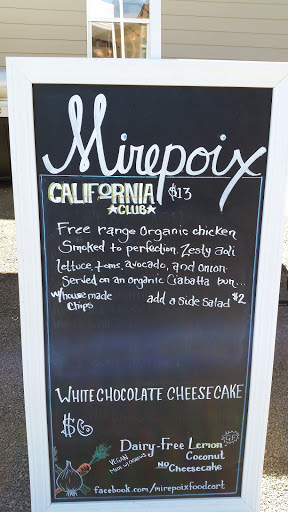 Mirepoix
CALIFORNIA $13
★CLUB★
Free range Organic chicken
Smoked to perfection. Zesty aoli
lettuce, toms, avocado, and onion.
Served on an organic Ciabatta bun...
w/house made add a side salad $2
chips
WHITE CHOCOLATE CHEESECAKE
$6
Dairy-Free Lemon
Coconut
NO Cheesecake
VEGAN
facebook.com/mirepoixfoodcart